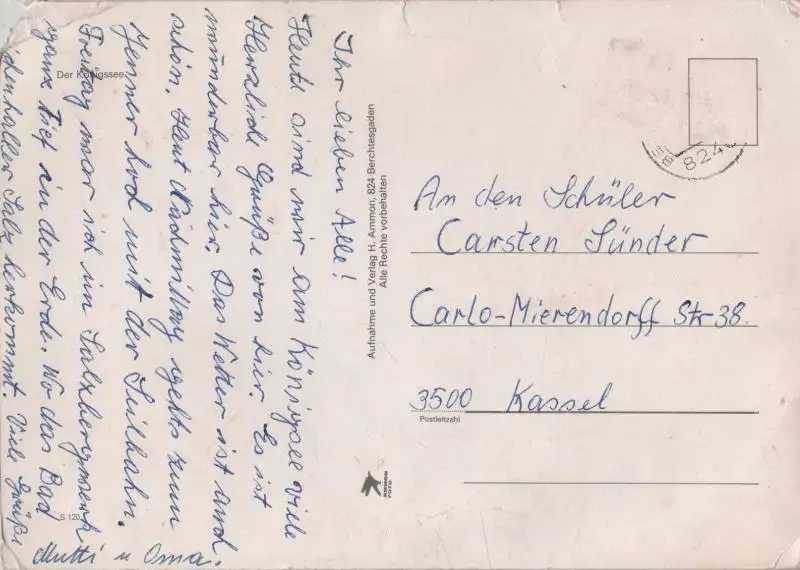 Ihr lieben Alle!
Heute sind wir am Königsee viele
Herzliche Grüße von hier. Es ist
wunderbar hier. Das Wetter ist auch
schön. Heut Nachmittag gehts zum
Jenner hoch mit der Seilbahn.
Freitag war ich im Salzbergwerk
ganz tief in der Erde. Wo das Bad
Reichenhaller Salz herkommt. Viele Grüße
Mutti u Oma.
Der Königssee
S 120
Aufnahme und Verlag H. Ammon, 824 Berchtesgaden
Alle Rechte vorbehalten
AMMON
FOTO
824
An den Schüler
Carsten Sünder
Carlo-Mierendorff Str 38.
3500 Kassel
Postleitzahl